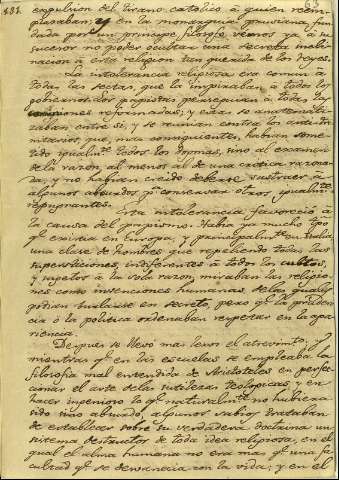 181. expulsion del tirano catolico á quien reem-
plazaban y en la monarquia prusiana fun-
dada por un principe filosofo vemos ya á su
sucesor no poder ocultar una secreta incli-
nacion á esta religion tan querida de los reyes.
La intolerancia religiosa era comun á
todas las sectas, que la inspiraban á todos los
gobiernos. Los papistas perseguian á todas las
reformadas, y estas se anatemati-
zaban entre si, y se reunian contra los antitri-
nitarios, que, mas consiguientes, habian some-
tido igualmte. todos los dogmas, sino al examen
de la razon, al menos al de una critica razona-
da, y no habian creido deberse sustraer á
algunos absurdos pa. conservar otros, igualmte.
repugnantes.
Esta intolerancia favoreció á
la causa del papismo. Habia ya mucho tiempo
qe. existia en Europa, y principalmte. en Italia
una clase de hombres que regulando todas las
supersticiones, indiferentes á todos los cultos,
y sujetos á la sola razon, miraban las religio-
nes como invenciones humanas, de las quales
podian burlarse en secreto, pero qe. la pruden-
cia ó la politica ordenaban respetar en la apa-
riencia.
Despues se llevó mas lexos el atrevimto., y
mientras qe. en las escuelas se empleaba la
filosofia mal entendida de Aristóteles en perfec-
cionar el arte de las sutilezas teologicas, y en
hacer ingenioso lo qe. naturalmte. no hubiera
sido sino absurdo, algunos sabios trataban
de establecer sobre su verdadera doctrina un
sistema destructor de toda idea religiosa, en el
qual el alma humana no era mas qe. una fa-
cultad qe. se desvanecia con la vida, y en el